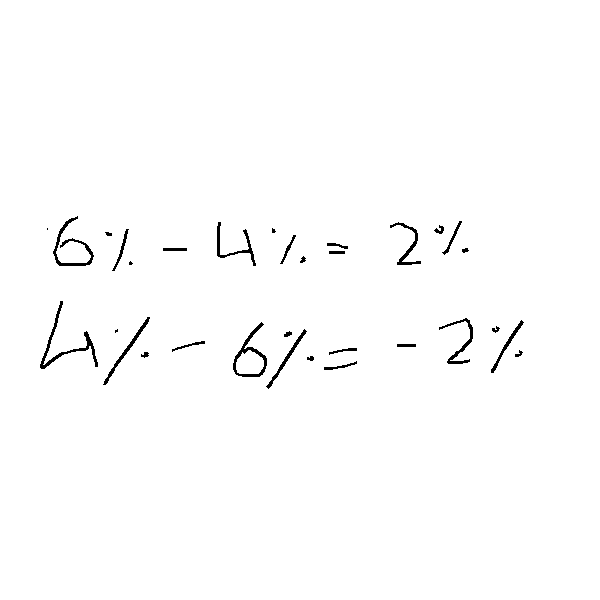 6% - 4% = 2%
4% - 6% = - 2%